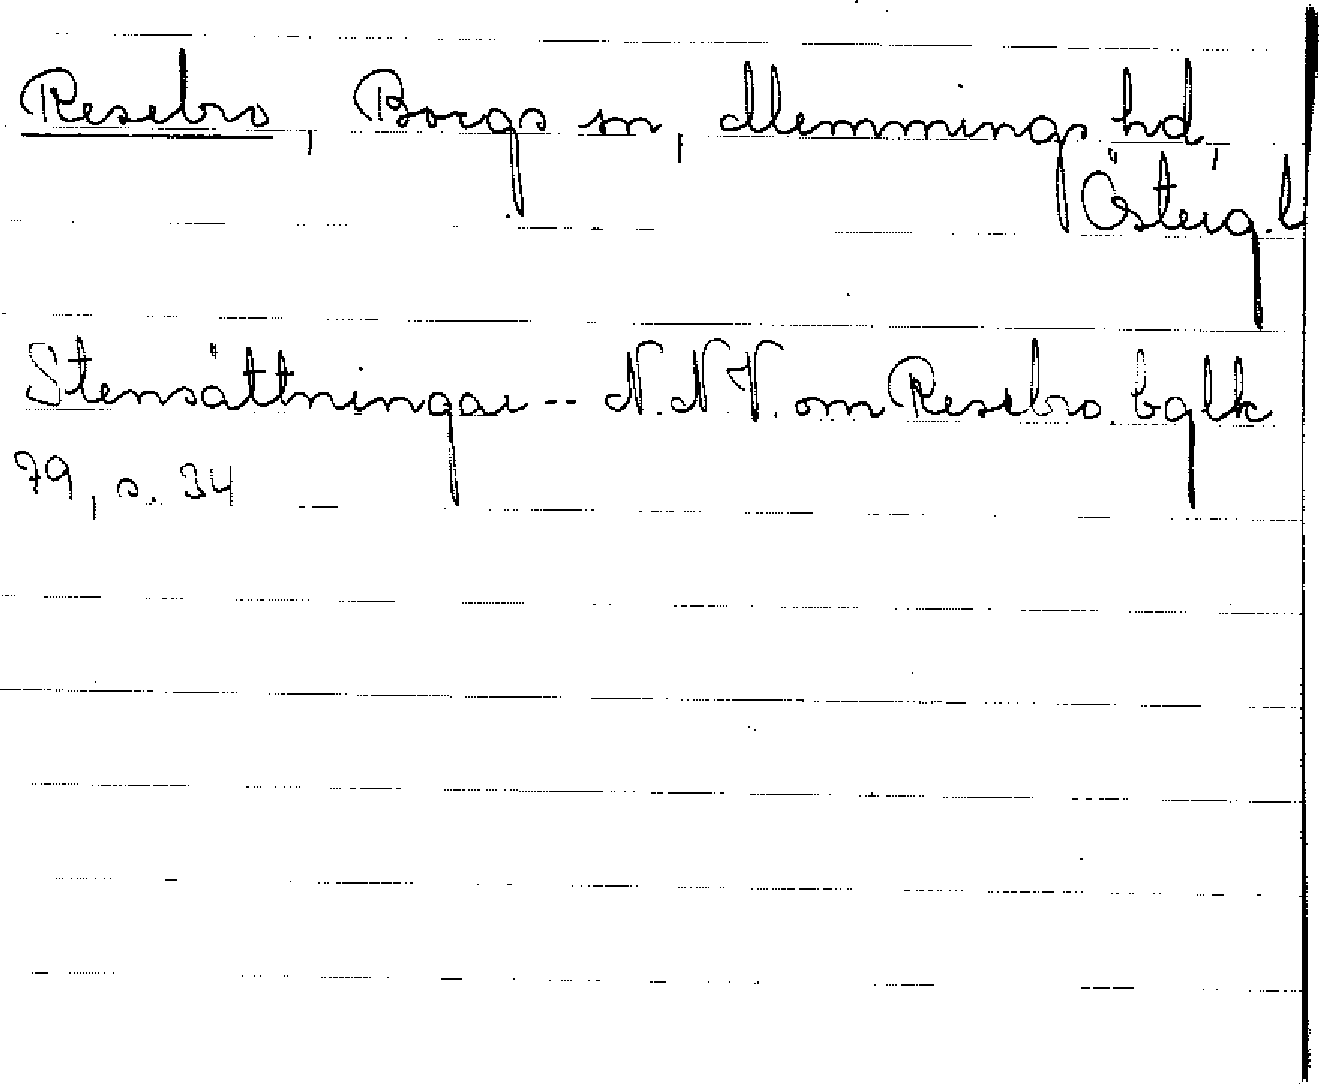 Resebro, Borgs sn, Memmings hd,
Österg. l
Stensättningar -- N.N.V. om Resebro. bglk
79, s. 34